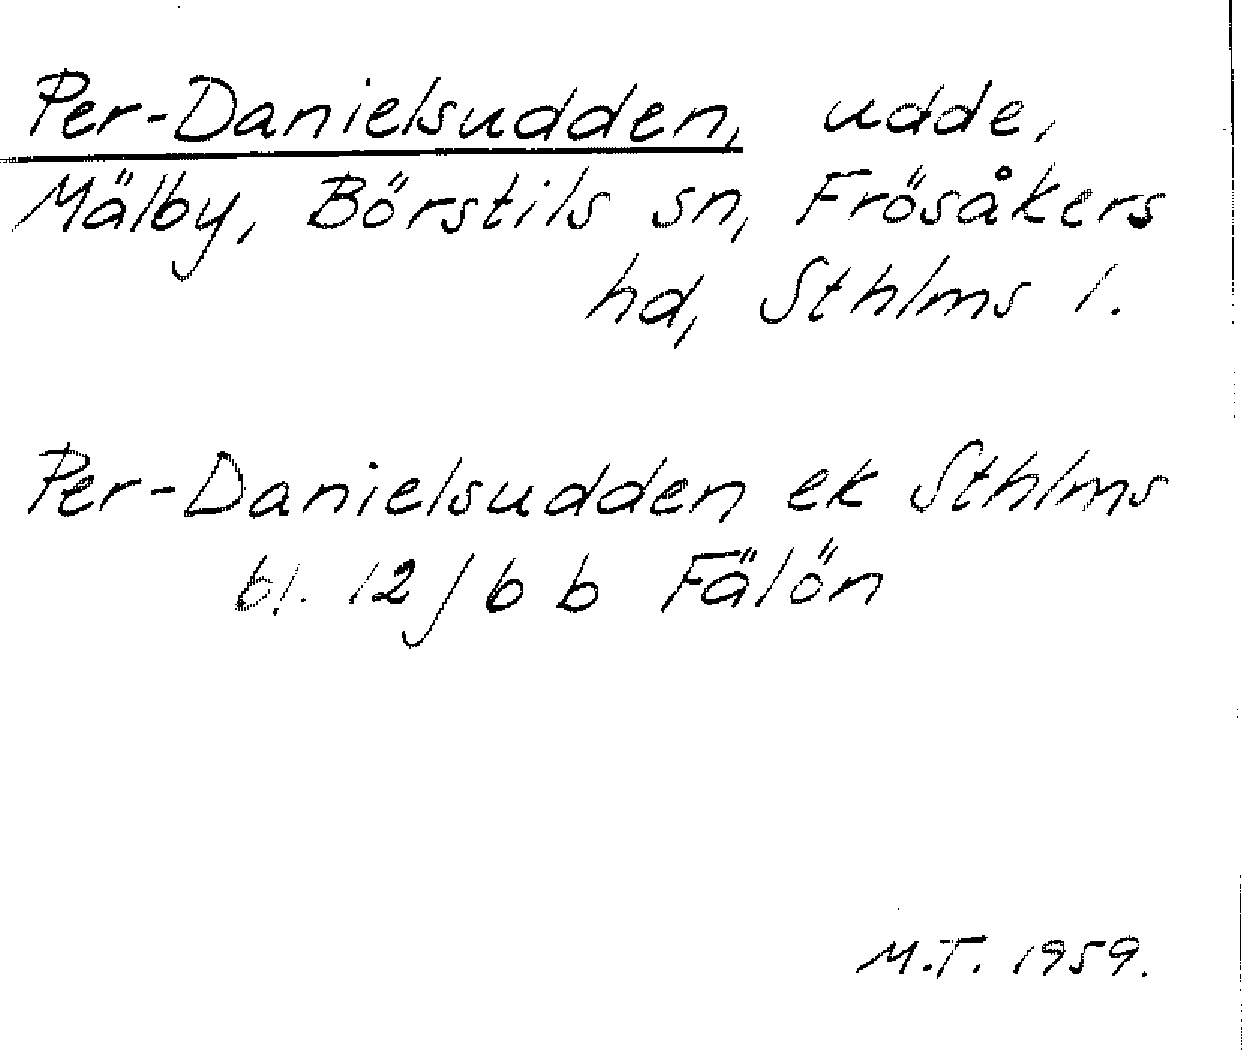 Per-Danielsudden, udde,
Mälby, Börstils sn, Frösåkers
hd, Sthlms l.
Per-Danielsudden ek Sthlms
bl. 12 j 6 b Fälön
M.T. 1959.